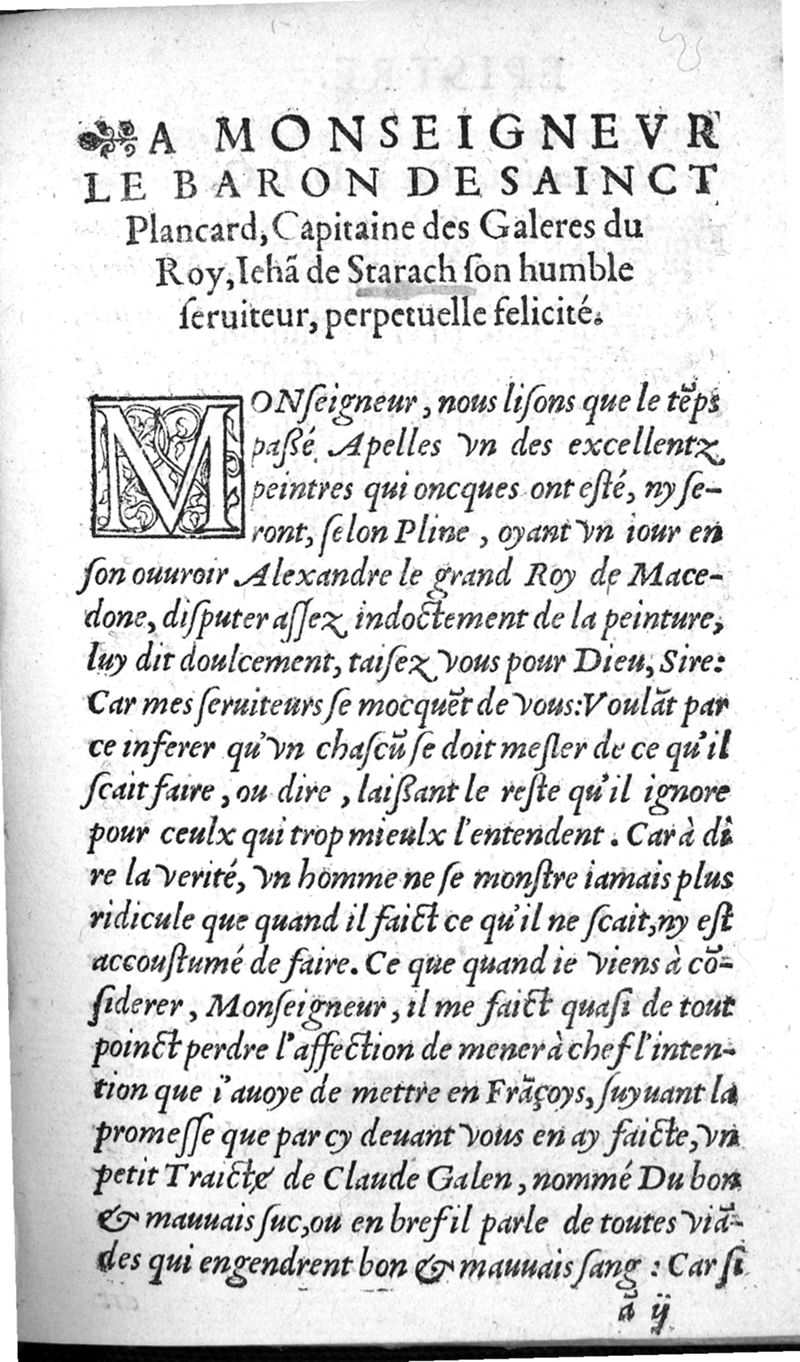 A MONSEIGNEVR
LE BARON DE SAINCT
Plancard, Capitaine des Galeres du
Roy, Iehã de Starach ſon humble
ſeruiteur, perpetuelle felicité.
MONſeigneur, nous liſons que le tẽps
paſſé Apelles vn des excellentz
peintres qui oncques ont eſté, ny ſe-
ront, ſelon Pline, oyant vn iour en
ſon ouuroir Alexandre le grand Roy de Mace-
done, diſputer aſſez indoctement de la peinture,
luy dit doulcement, taiſez vous pour Dieu, Sire:
Car mes ſeruiteurs ſe mocquẽt de vous: Voulãt par
ce inferer qu'vn chaſcũ ſe doit meſler de ce qu'il
ſcait faire, ou dire, laiſſant le reſte qu'il ignore
pour ceulx qui trop mieulx l'entendent. Car à di
re la verité, vn homme ne ſe monſtre iamais plus
ridicule que quand il faict ce qu'il ne ſcait, ny eſt
accouſtumé de faire. Ce que quand ie viens à cõ-
ſiderer, Monſeigneur, il me faict quaſi de tout
poinct perdre l'affection de mener à chef l'inten-
tion que i'auoye de mettre en Frãçoys, ſuyuant la
promeſſe que par cy deuant vous en ay faicte, vn
petit Traicté de Claude Galen, nommé Du bon
& mauuais ſuc, ou en bref il parle de toutes viã-
des qui engendrent bon & mauuais ſang : Car ſi
ã ij